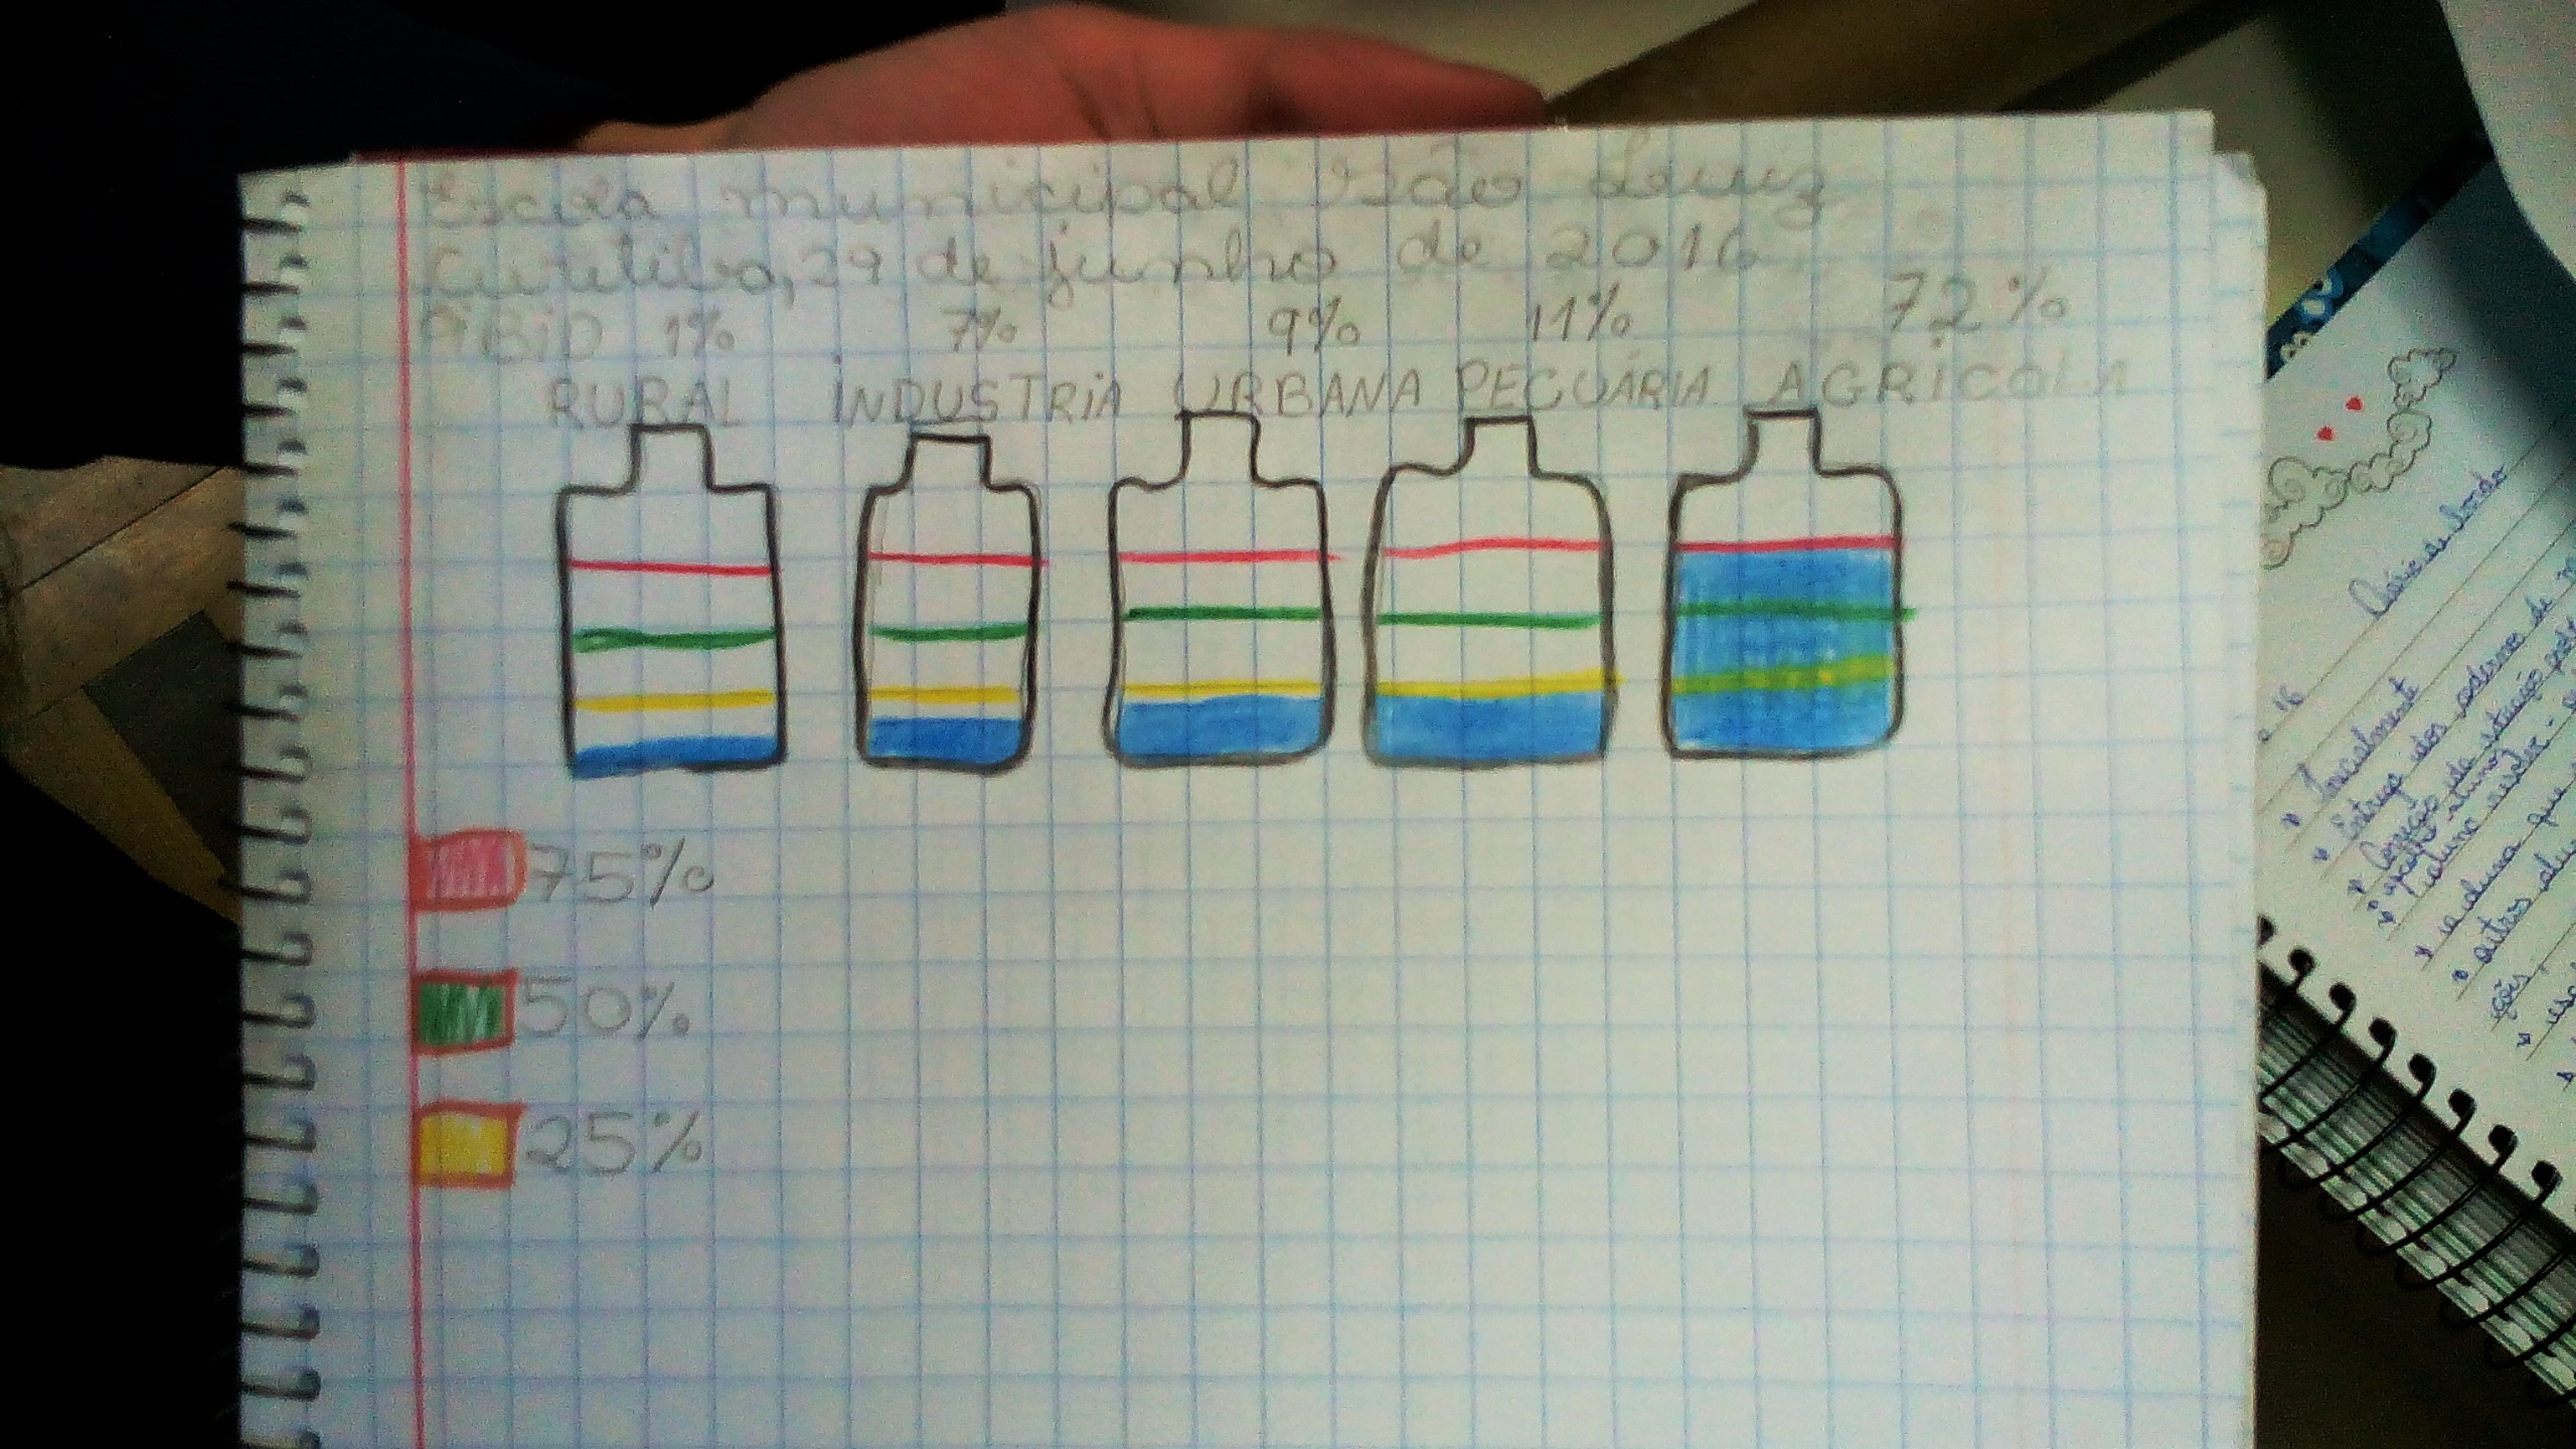 Escola municipal São Luiz
Curitiba, 29 de junho de 2016
PiBiD 1% 7% 9% 11% 72%
RURAL iNDUSTRiA URBANA PECUÁRIA AGRíCOLA
75%
50%
25%
Diário de bordo
16
Inicialmente
Entrega dos cadernos de
Correção da
aluno
a aluna que
outros
ções.